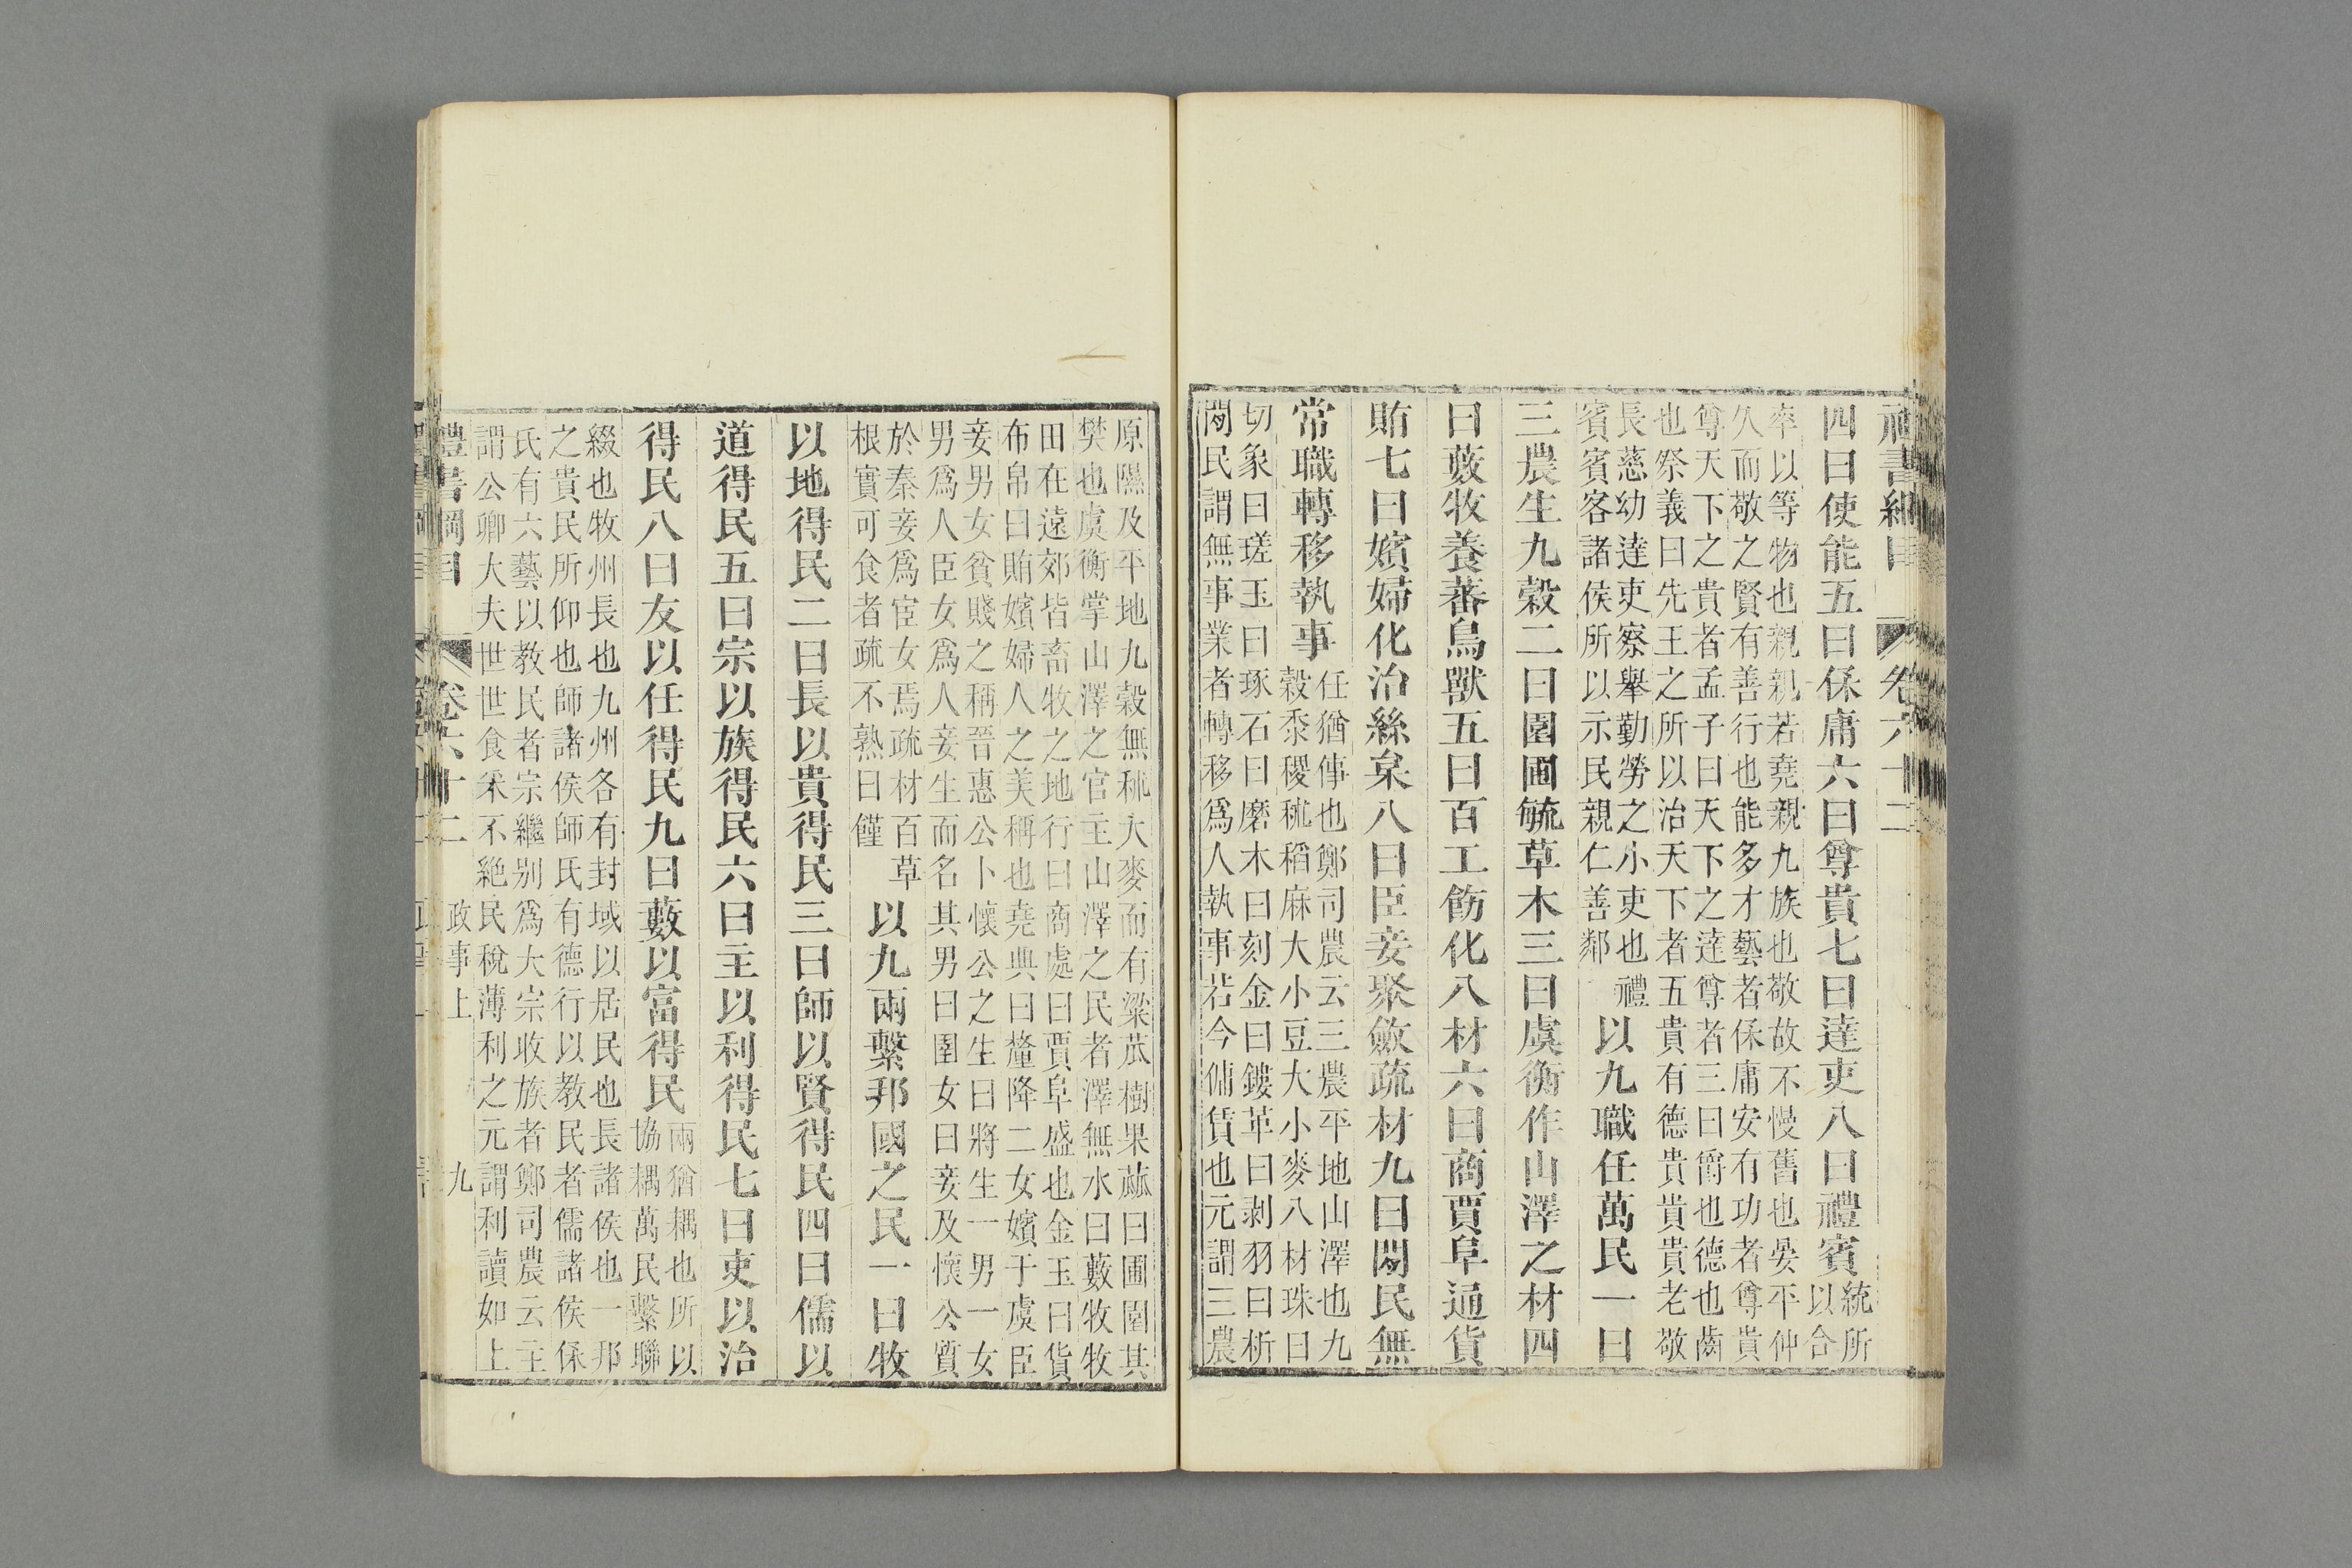 禮書綱目 卷六十二
四曰使能五曰保庸六曰尊貴七曰達吏八曰禮賓統所
以合
率以等物也親親若堯親九族也敬故不慢舊也晏平仲
久而敬之賢有善行也能多才藝者保庸安有功者尊貴
尊天下之貴者孟子曰天下之達尊者三曰爵也德也齒
也祭義曰先王之所以治天下者五貴有德貴貴貴老敬
長慈幼達吏察舉勤勞之小吏也禮
賓賓客諸侯所以示民親仁善鄰
以九職任萬民一曰
三農生九穀二曰園圃毓草木三曰虞衡作山澤之材四
曰藪牧養蕃鳥獸五曰百工飭化八材六曰商賈阜通貨
賄七曰嬪婦化治絲枲八曰臣妾聚斂疏材九曰閒民無
常職轉移執事
任猶倳也鄭司農云三農平地山澤也九
穀黍稷秫稻麻大小豆大小麥八材珠曰
切象曰瑳玉曰琢石曰磨木曰刻金曰鏤革曰剥羽曰析
閒民謂無事業者轉移爲人執事若今傭賃也元謂三農
原隰及平地九穀無秫大麥而有粱苽樹果蓏曰圃園其
樊也虞衡掌山澤之官主山澤之民者澤無水曰藪牧牧
田在遠郊皆畜牧之地行曰商處曰賈阜盛也金玉曰貨
布帛曰賄嬪婦人之美稱也堯典曰釐降二女嬪于虞臣
妾男女貧賤之稱晉惠公卜懷公之生曰將生一男一女
男爲人臣女爲人妾生而名其男曰圉女曰妾及懷公質
於秦妾爲宦女焉疏材百草
根實可食者疏不熟曰饉
以九兩繫邦國之民一曰牧
以地得民二曰長以貴得民三曰師以賢得民四曰儒以
道得民五曰宗以族得民六曰主以利得民七曰吏以治
得民八曰友以任得民九曰藪以富得民
兩猶耦也所以
協耦萬民繫聯
綴也牧州長也九州各有封域以居民也長諸侯也一邦
之貴民所仰也師諸侯師氏有德行以教民者儒諸侯保
氏有六藝以教民者宗繼別爲大宗收族者鄭司農云主
謂公卿大夫世世食采不絶民稅薄利之元謂利讀如上
禮書綱目 卷六十二 政事上 九